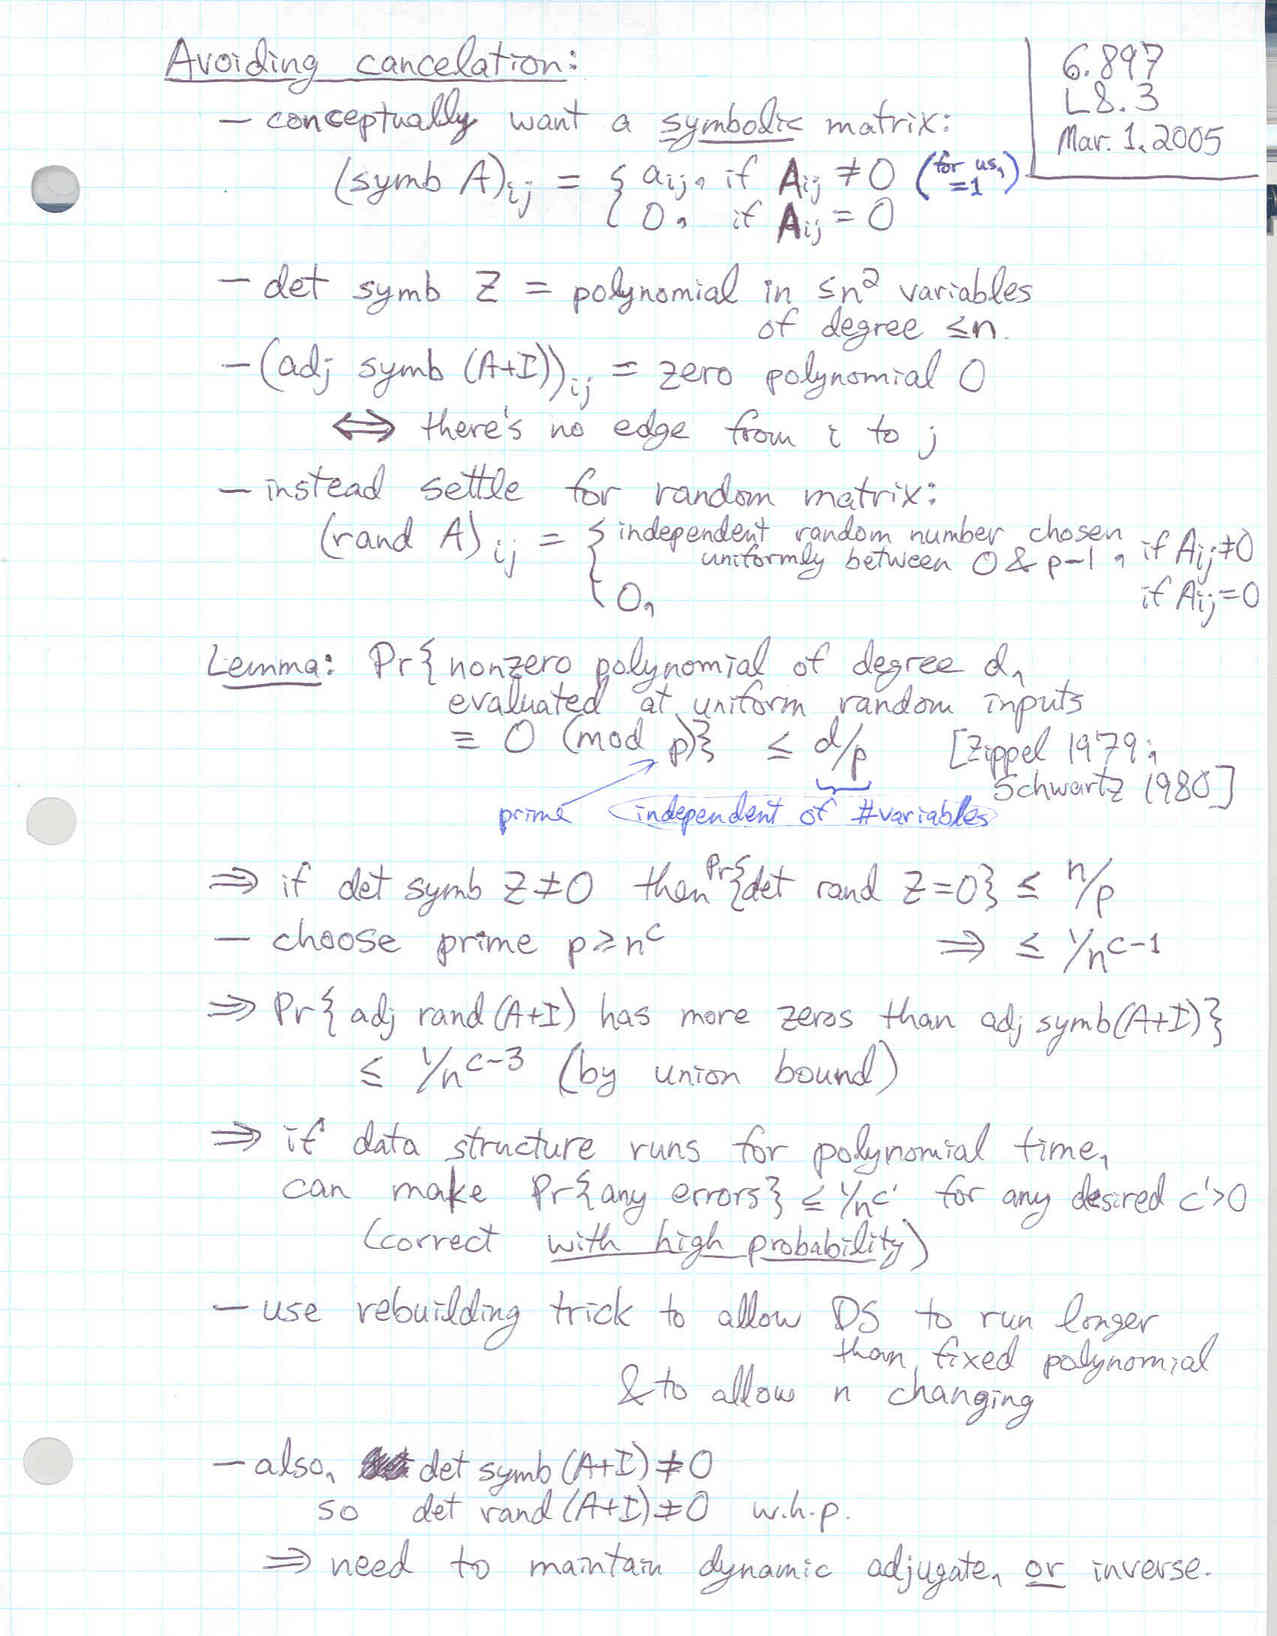 Avoiding cancelation:
6.897
L8.3
Mar. 1, 2005
– conceptually want a symbolic matrix:
(symb A)ij = { aij, if Aij ≠ 0 (for us, =1)
0, if Aij = 0
– det symb Z = polynomial in ≤n² variables
of degree ≤n.
– (adj symb (A+I))ij = zero polynomial 0
⇔ there's no edge from i to j
– instead settle for random matrix:
(rand A)ij = { independent random number chosen
uniformly between 0 & p-1, if Aij≠0
0, if Aij=0
Lemma: Pr{nonzero polynomial of degree d,
evaluated at uniform random inputs
≡ 0 (mod p)} ≤ d/p [Zippel 1979;
Schwartz 1980]
prime independent of #variables
⇒ if det symb Z≠0 then Pr{det rand Z=0} ≤ n/p
– choose prime p≥n^c ⇒ ≤ 1/n^c-1
⇒ Pr{adj rand(A+I) has more zeros than adj symb(A+I)}
≤ 1/n^c-3 (by union bound)
⇒ if data structure runs for polynomial time,
can make Pr{any errors} ≤ 1/n^c' for any desired c'>0
(correct with high probability)
– use rebuilding trick to allow DS to run longer
than fixed polynomial
& to allow n changing
– also, det symb(A+I)≠0
so det rand(A+I)≠0 w.h.p.
⇒ need to maintain dynamic adjugate, or inverse.